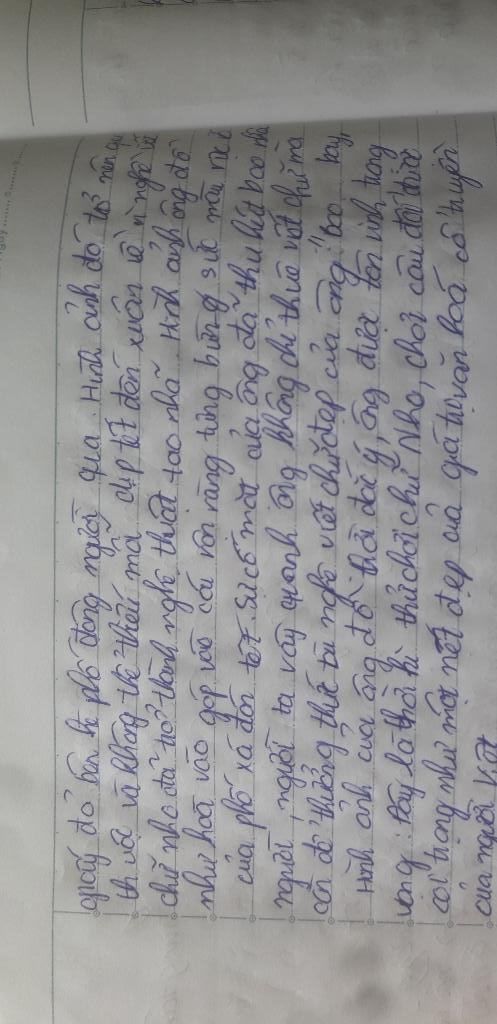 giấy đỏ bên hè phố đông người qua. Hình ảnh đó trở nên
thuộc và không thể thiếu mỗi dịp tết đến xuân về vì nghề viết
chữ nho đã trở thành nghệ thuật tao nhã. Hình ảnh ông đồ
như hoà vào góp vào cái rộn ràng tưng bừng sắc màu rực rỡ
của phố xá đón tết. Sự có mặt của ông đã thu hút bao nhiêu
người, người ta vây quanh ông không chỉ thuê viết chữ mà
còn để thưởng thức tài nghệ viết chữ đẹp của ông: "Bao ... bay"
Hình ảnh của ông đồ thời đắc ý, ông được tôn vinh trong
vọng: Đây là thời kì thú chơi chữ Nho, chơi câu đối được
coi trọng như một nét đẹp của giá trị văn hoá cổ truyền
của người Việt